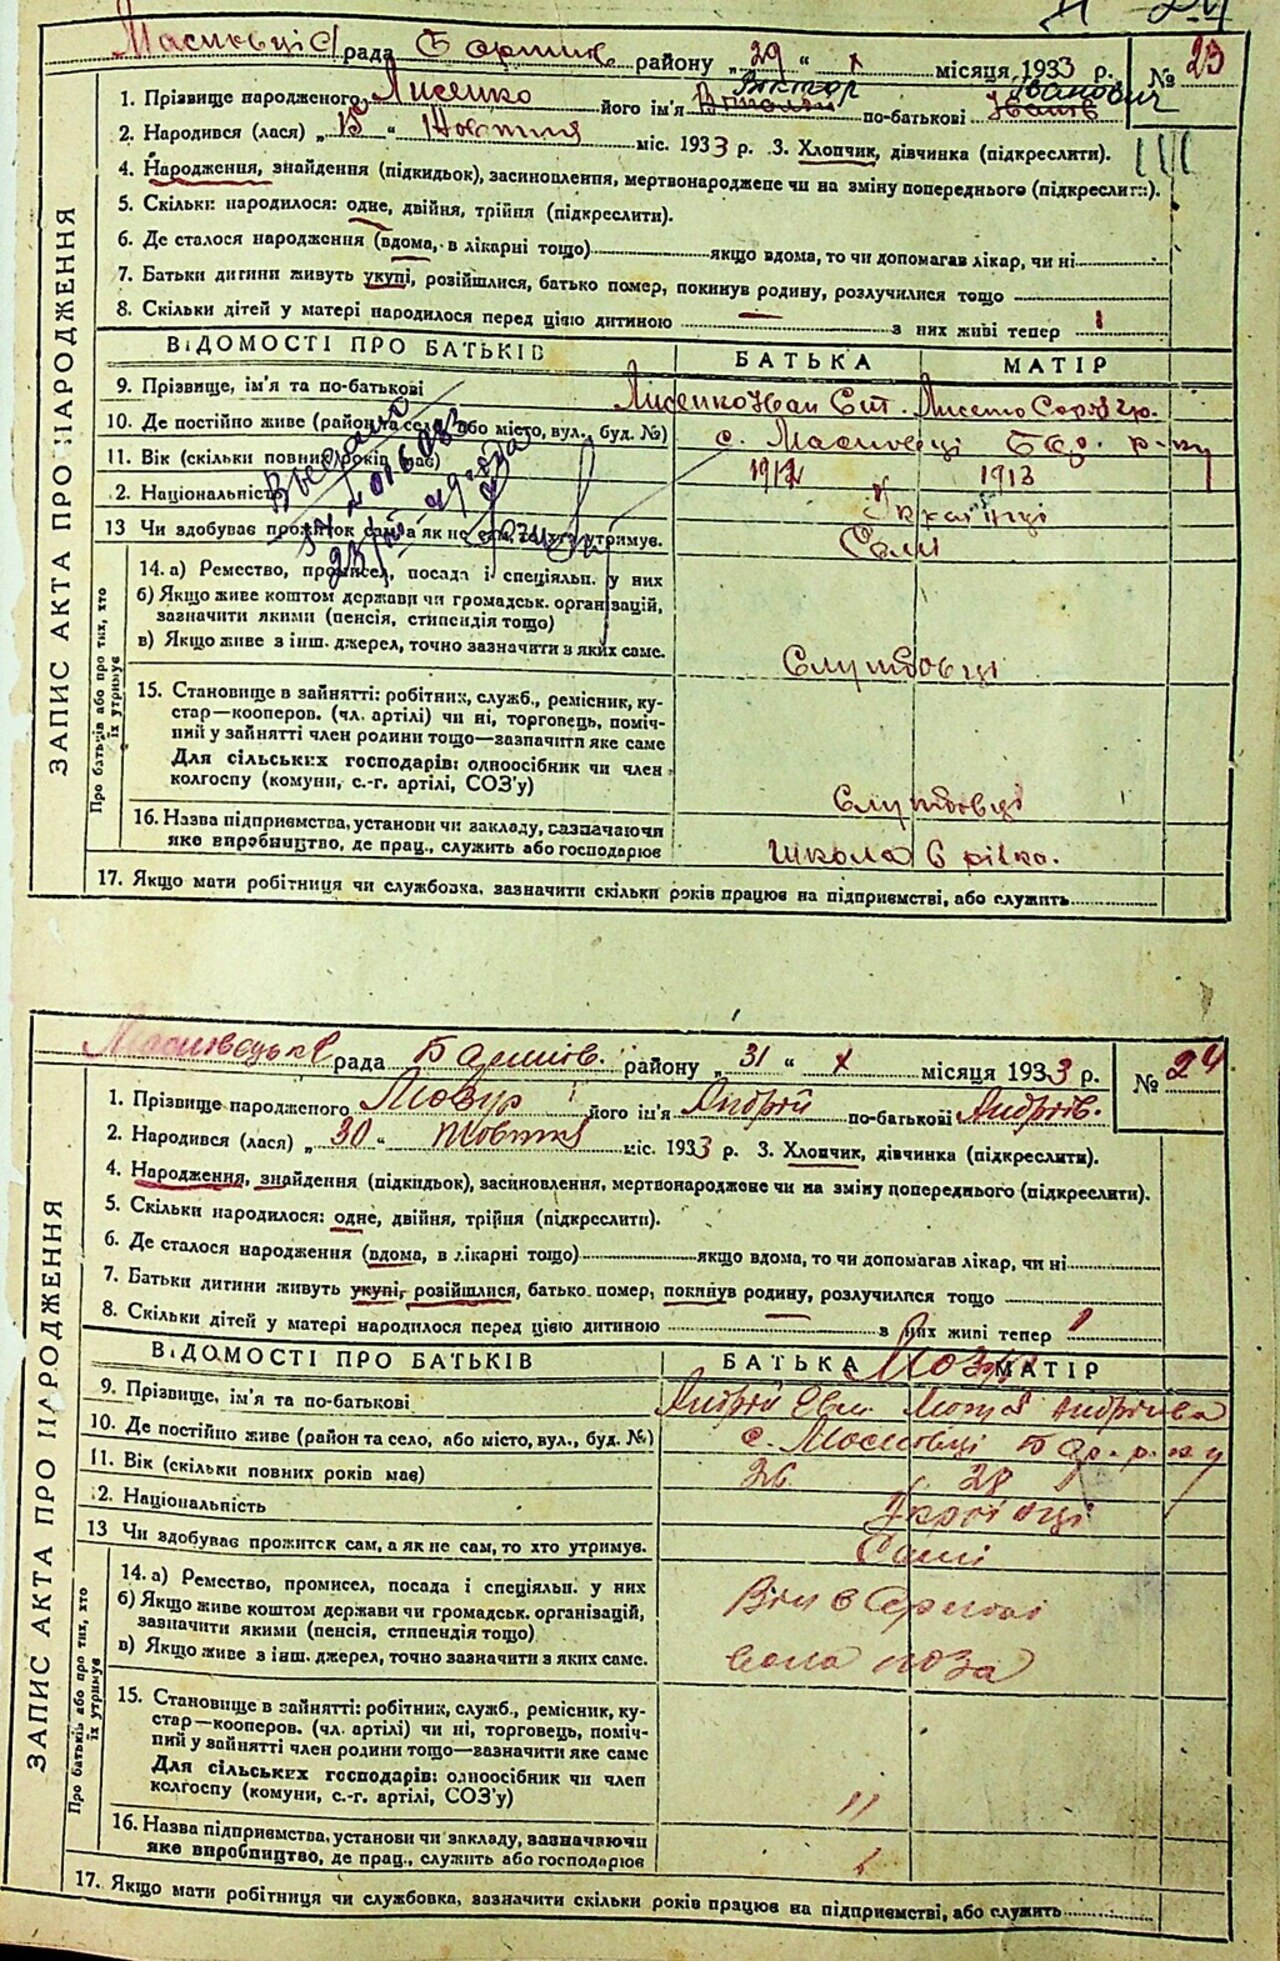 рада району „ 29 “ X місяця 1933 р. № 23
Віктор Іванович
1. Прізвище народженого Лисенко його ім'я по-батькові Іванів
2. Народився (лася) „ 15 “ Жовтня міс. 1933 р. 3. Хлопчик, дівчинка (підкреслити).
4. Народження, знайдення (підкидьок), засиновлення, мертвонароджене чи на зміну попереднього (підкреслити).
5. Скільки народилося: одне, двійня, трійня (підкреслити).
6. Де сталося народження (вдома, в лікарні тощо) якщо вдома, то чи допомагав лікар, чи ні
7. Батьки дитини живуть укупі, розійшлися, батько помер, покинув родину, розлучилися тощо
8. Скільки дітей у матері народилося перед цією дитиною — з них живі тепер 1
ЗАПИС АКТА ПРО НАРОДЖЕННЯ
ВІДОМОСТІ ПРО БАТЬКІВ БАТЬКА МАТІР
9. Прізвище, ім'я та по-батькові Лисенко Іван
10. Де постійно живе (район та село, або місто, вул., буд. №) с. Масівці
11. Вік (скільки повних років має) 1912 1913
2. Національність Українці
13 Чи здобуває прожиток сам, а як не сам, то хто утримує. Самі
Про батьків або про тих, хто їх утримує
14. а) Ремество, промисел, посада і спеціяльн. у них
б) Якщо живе коштом держави чи громадськ. організацій,
зазначити якими (пенсія, стипендія тощо)
в) Якщо живе з інш. джерел, точно зазначити з яких саме.
Службовці
15. Становище в зайнятті: робітник, служб., ремісник, ку-
стар—кооперов. (чл. артілі) чи ні, торговець, поміч-
ний у зайнятті член родини тощо—зазначити яке саме
Для сільських господарів: одноосібник чи член
колгоспу (комуни, с.-г. артілі, СОЗ'у)
Службовці
16. Назва підприємства, установи чи закладу, зазначаючи
яке виробництво, де прац., служить або господарює Школа
17. Якщо мати робітниця чи службовка, зазначити скільки років працює на підприємстві, або служить
рада району „ 31 “ X місяця 1933 р. № 24
1. Прізвище народженого Мозур його ім'я Андрій по-батькові Андріїв.
2. Народився (лася) „ 30 “ Жовтня міс. 1933 р. 3. Хлопчик, дівчинка (підкреслити).
4. Народження, знайдення (підкидьок), засиновлення, мертвонароджене чи на зміну попереднього (підкреслити).
5. Скільки народилося: одне, двійня, трійня (підкреслити).
6. Де сталося народження (вдома, в лікарні тощо) якщо вдома, то чи допомагав лікар, чи ні
7. Батьки дитини живуть укупі, розійшлися, батько помер, покинув родину, розлучилися тощо
8. Скільки дітей у матері народилося перед цією дитиною — з них живі тепер 1
ЗАПИС АКТА ПРО НАРОДЖЕННЯ
ВІДОМОСТІ ПРО БАТЬКІВ БАТЬКА МАТІР
9. Прізвище, ім'я та по-батькові Андрій
10. Де постійно живе (район та село, або місто, вул., буд. №) с.
11. Вік (скільки повних років має) 26 28
2. Національність Українці
13 Чи здобуває прожиток сам, а як не сам, то хто утримує. Самі
Про батьків або про тих, хто їх утримує
14. а) Ремество, промисел, посада і спеціяльн. у них
б) Якщо живе коштом держави чи громадськ. організацій,
зазначити якими (пенсія, стипендія тощо)
в) Якщо живе з інш. джерел, точно зазначити з яких саме.
15. Становище в зайнятті: робітник, служб., ремісник, ку-
стар—кооперов. (чл. артілі) чи ні, торговець, поміч-
ний у зайнятті член родини тощо—зазначити яке саме
Для сільських господарів: одноосібник чи член
колгоспу (комуни, с.-г. артілі, СОЗ'у) "
16. Назва підприємства, установи чи закладу, зазначаючи
яке виробництво, де прац., служить або господарює
17. Якщо мати робітниця чи службовка, зазначити скільки років працює на підприємстві, або служить